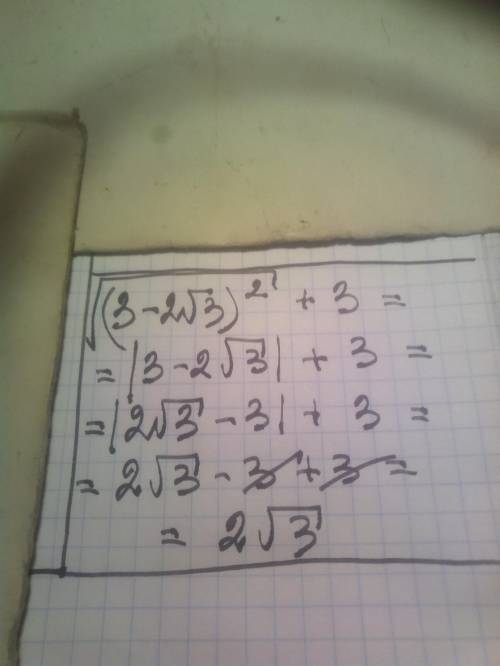 √(3-2√3)² + 3 =
= |3-2√3| + 3 =
= |2√3 - 3| + 3 =
= 2√3 - 3 + 3 =
= 2√3